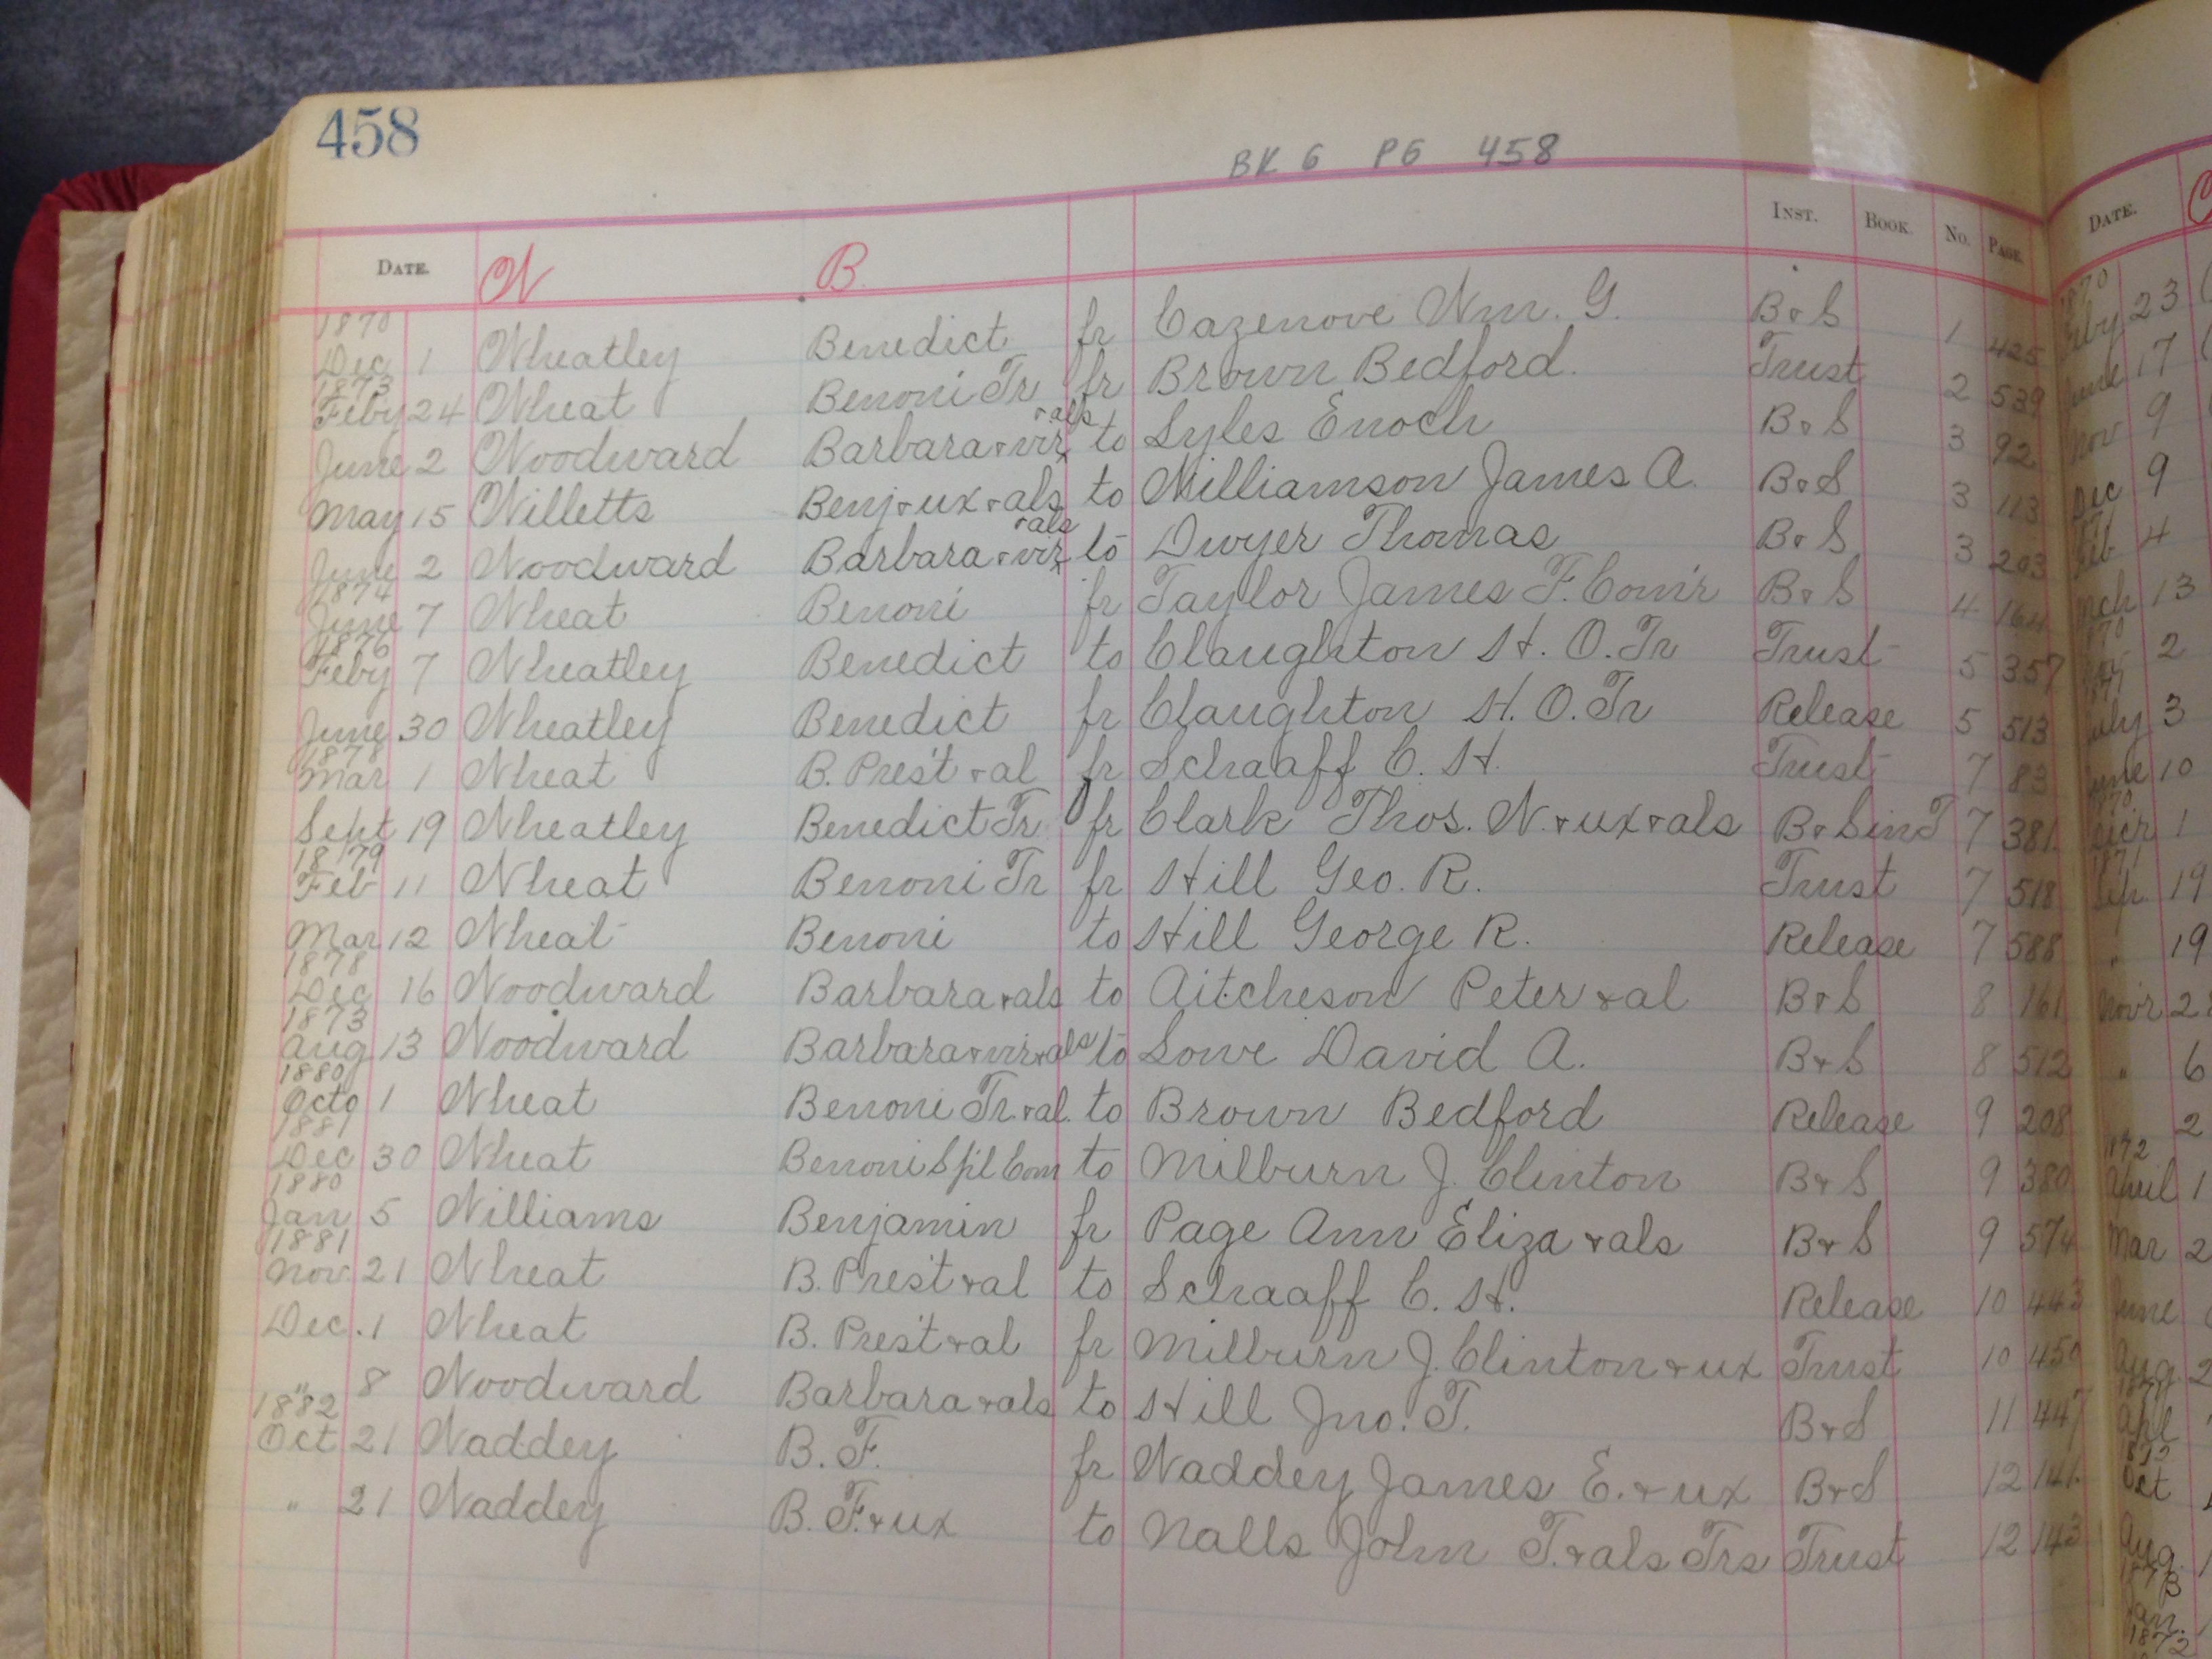 458
BK 6 PG 458
DATE. W B. INST. BOOK. No. PAGE.
1870
Dec 1 Wheatley Benedict fr Cazenove Wm. G. B&S 1 425
1873
Feby 24 Wheat Benoni Tr fr Brown Bedford. Trust 2 539
June 2 Woodward Barbara & vir & als to Lyles Enoch B&S 3 92
May 15 Willetts Benj & ux & als to Williamson James A. B&S 3 113
June 2 Woodward Barbara & vir & als to Dwyer Thomas B&S 3 203
1874
June 7 Wheat Benoni fr Taylor James F. Com'r B&S 4 164
1876
Feby 7 Wheatley Benedict to Claughton H. O. Tr Trust 5 357
June 30 Wheatley Benedict fr Claughton H. O. Tr Release 5 513
1878
Mar 1 Wheat B. Pres't & al fr Schaaff C. H. Trust 7 83
Sept 19 Wheatley Benedict Tr fr Clark Thos. W. & ux & als B&S in T 7 381
1879
Feb 11 Wheat Benoni Tr fr Hill Geo. R. Trust 7 518
Mar 12 Wheat Benoni to Hill George R. Release 7 588
1878
Dec 16 Woodward Barbara & als to Aitcheson Peter & al B&S 8 161
1873
Aug 13 Woodward Barbara & vir & als to Lowe David A. B&S 8 512
1880
Octo 1 Wheat Benoni Tr & al. to Brown Bedford Release 9 208
1881
Dec 30 Wheat Benoni Sp'l Com to Milburn J. Clinton B&S 9 380
1880
Jan 5 Williams Benjamin fr Page Ann Eliza & als B&S 9 574
1881
Nov. 21 Wheat B. Pres't & al to Schaaff C. H. Release 10 443
Dec. 1 Wheat B. Pres't & al fr Milburn J. Clinton & ux Trust 10 450
" 8 Woodward Barbara & als to Hill Jno. T. B&S 11 447
1882
Oct 21 Waddey B. F. fr Waddey James E. & ux B&S 12 141
" 21 Waddey B. F. & ux to Nalls John T. & als Trs Trust 12 143
DATE.
23
June 17
Nov 9
Dec 9
Feb 4
Mch 13
2
July 3
June 10
1
19
" 19
Nov'r
" 6
2
1872
April 1
Mar 2
June
Aug. 2
Oct
Aug.
Jan.
1872